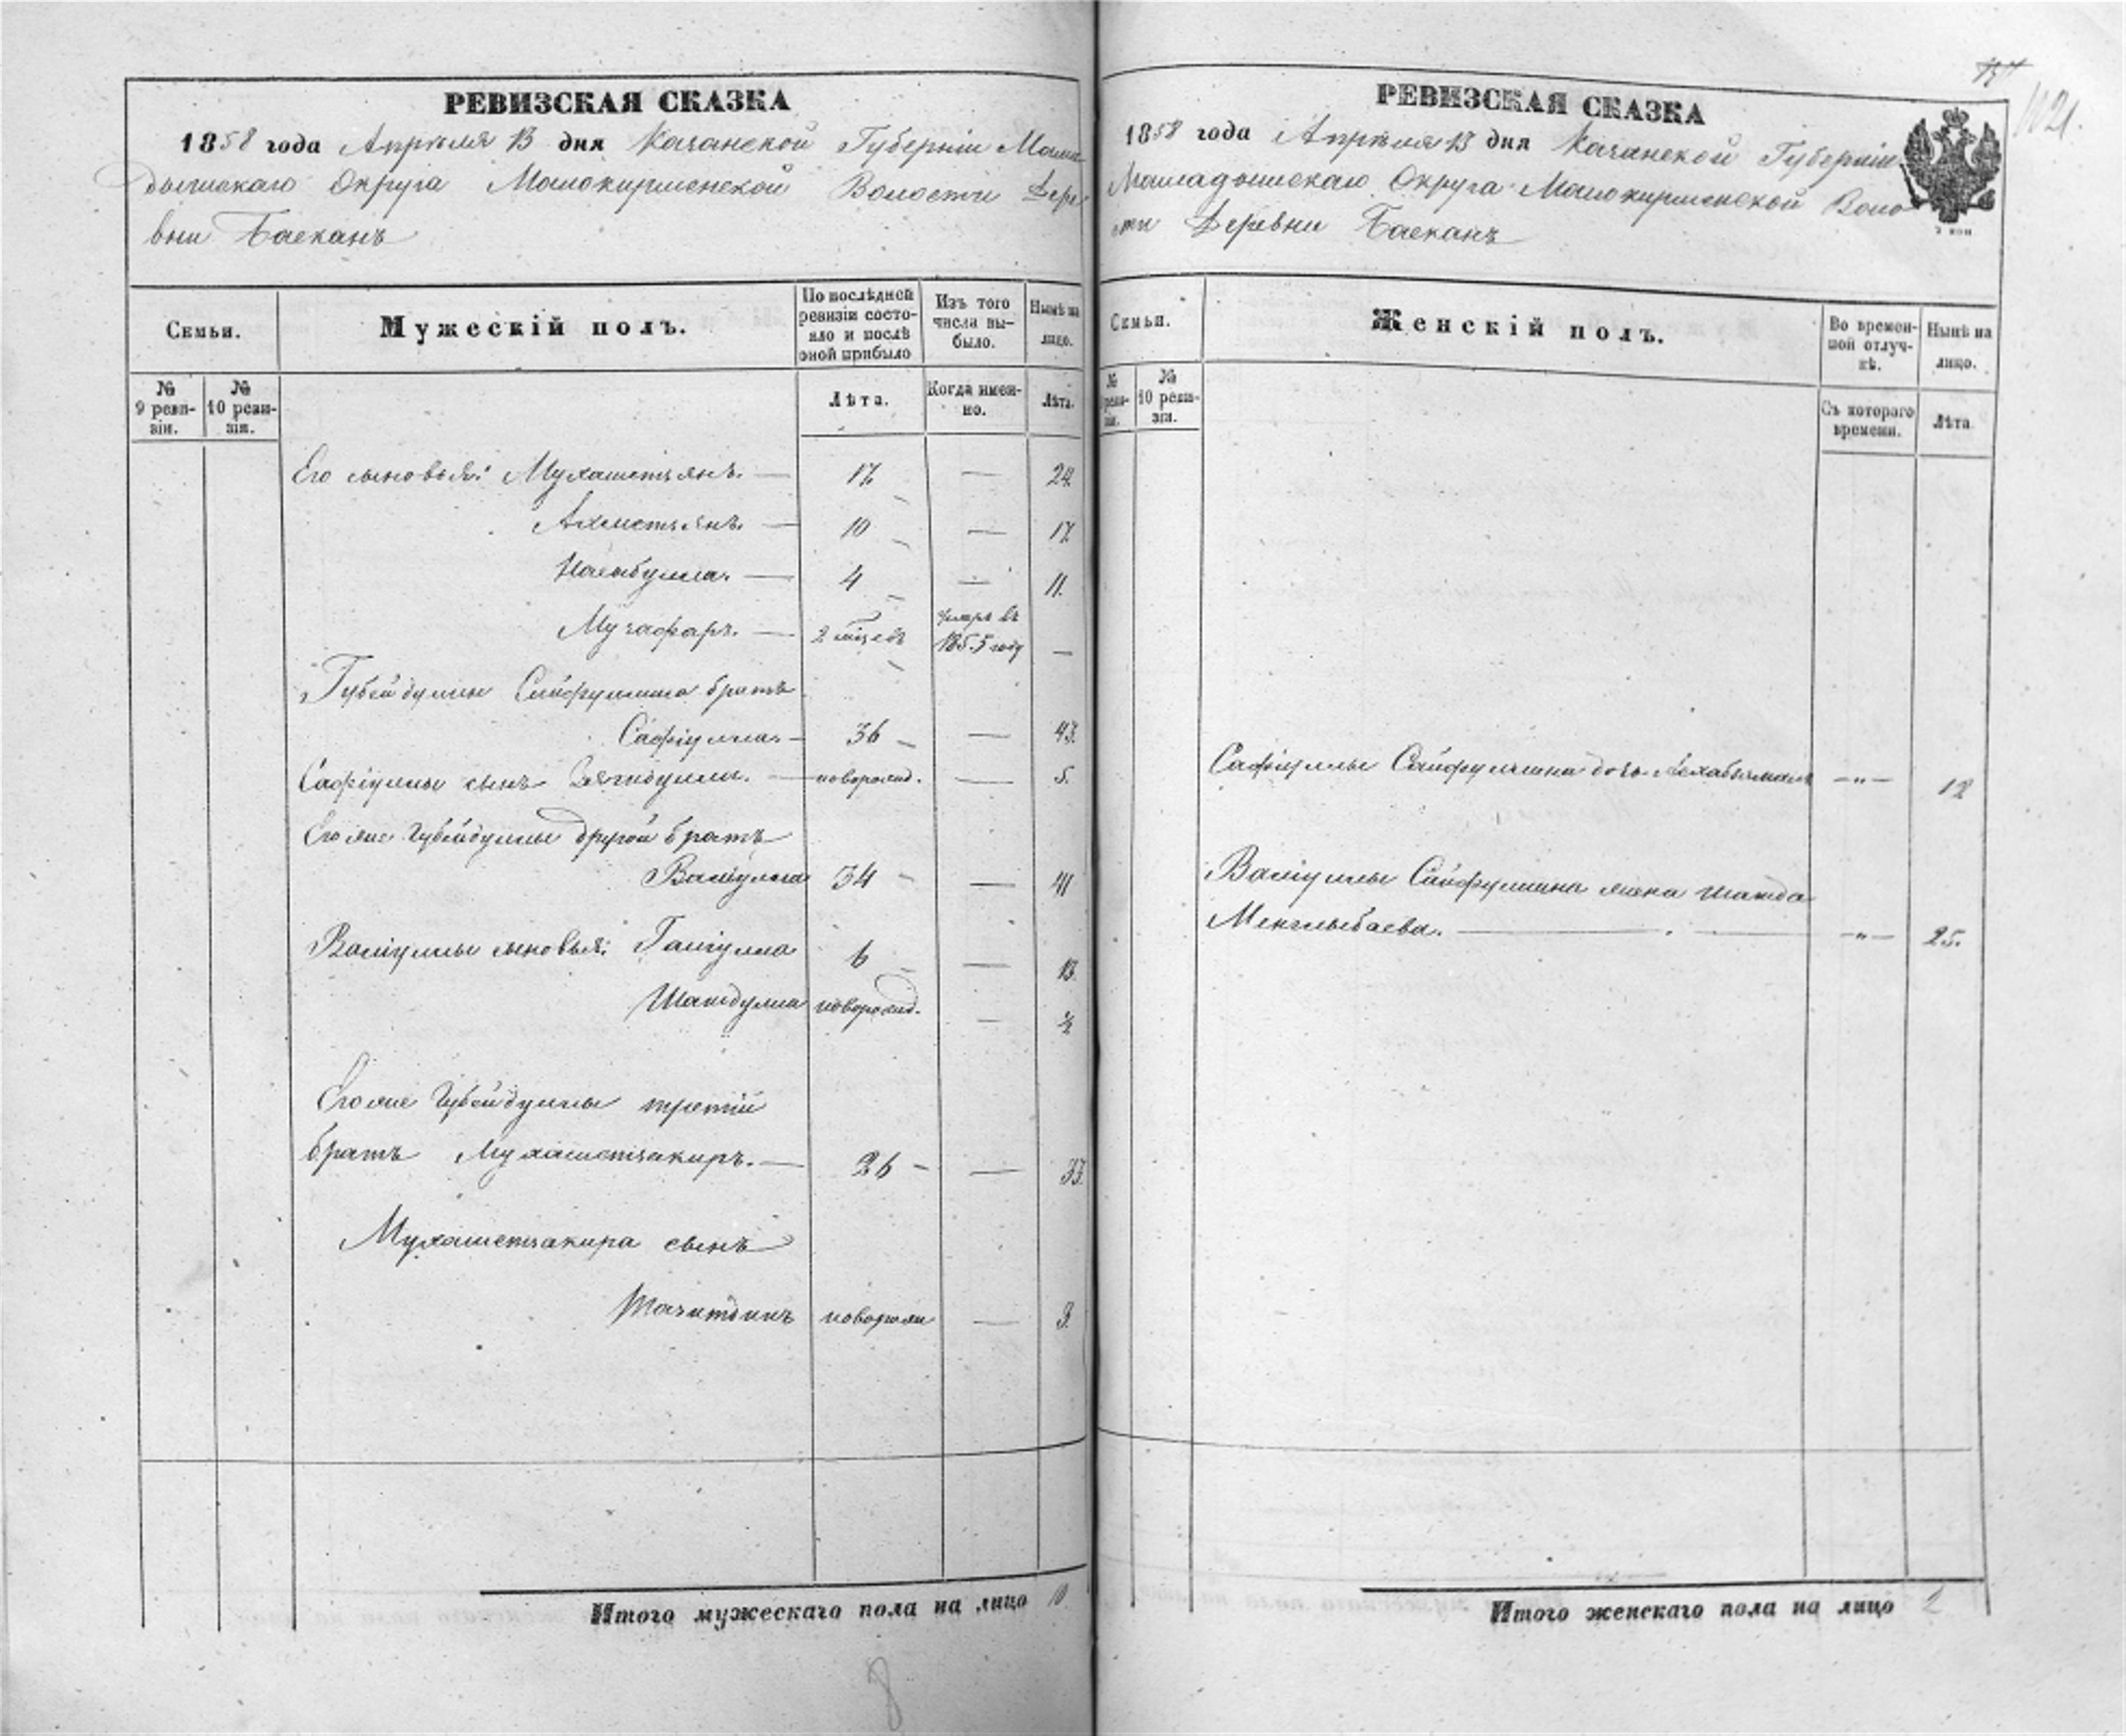 РЕВИЗСКАЯ СКАЗКА
1858 года Апрѣля 13 дня Казанской Губерніи Мама
дышскаго Округа Малокирменской Волости Дере
вни Баеканъ
Семьи.
Мужескій полъ.
По послѣдней ревизіи состо-
яло и послѣ
оной прибыло
Изъ того
числа вы-
было.
Нынѣ на
лицо.
№
9 реви-
зіи.
№
10 реви-
зіи.
Лѣта.
Когда имен-
но.
Лѣта.
Его сыновья: Мухаметзянъ. — 17. — 24
Ахметзянъ. — 10 — 17
4 — 11.
Музафаръ. — 2 умеръ въ
1855 году —
Губейдуллы Сайфуллина братъ
Сафіулла. — 36 — 43.
Сафіуллы сынъ — новорожд. — 5.
Его же Губейдуллы другой братъ
Валіулла 34 — 41
Валіуллы сыновья: Галіулла 6 — 13.
Шагидулла новорожд. — ½
Его же Губейдуллы третій
братъ Мухаметзакиръ. — 26 — 33.
Мухаметзакира сынъ
новорож — 3.
Итого мужескаго пола на лицо 10.
8
РЕВИЗСКАЯ СКАЗКА
1858 года Апрѣля 13 дня Казанской Губерніи
Мамадышскаго Округа Малокирменской Воло
сти Деревни Баеканъ
1021.
Семьи.
Женскій полъ.
Во времен-
ной отлуч-
кѣ.
Нынѣ на
лицо.
№
реви-
зіи.
№
10 реви-
зіи.
Съ котораго
времени.
Лѣта
Сафіуллы Сайфуллина дочь —„— 12
Валіуллы Сайфуллина жена
Менглыбаева. — —„— 25.
Итого женскаго пола на лицо 2